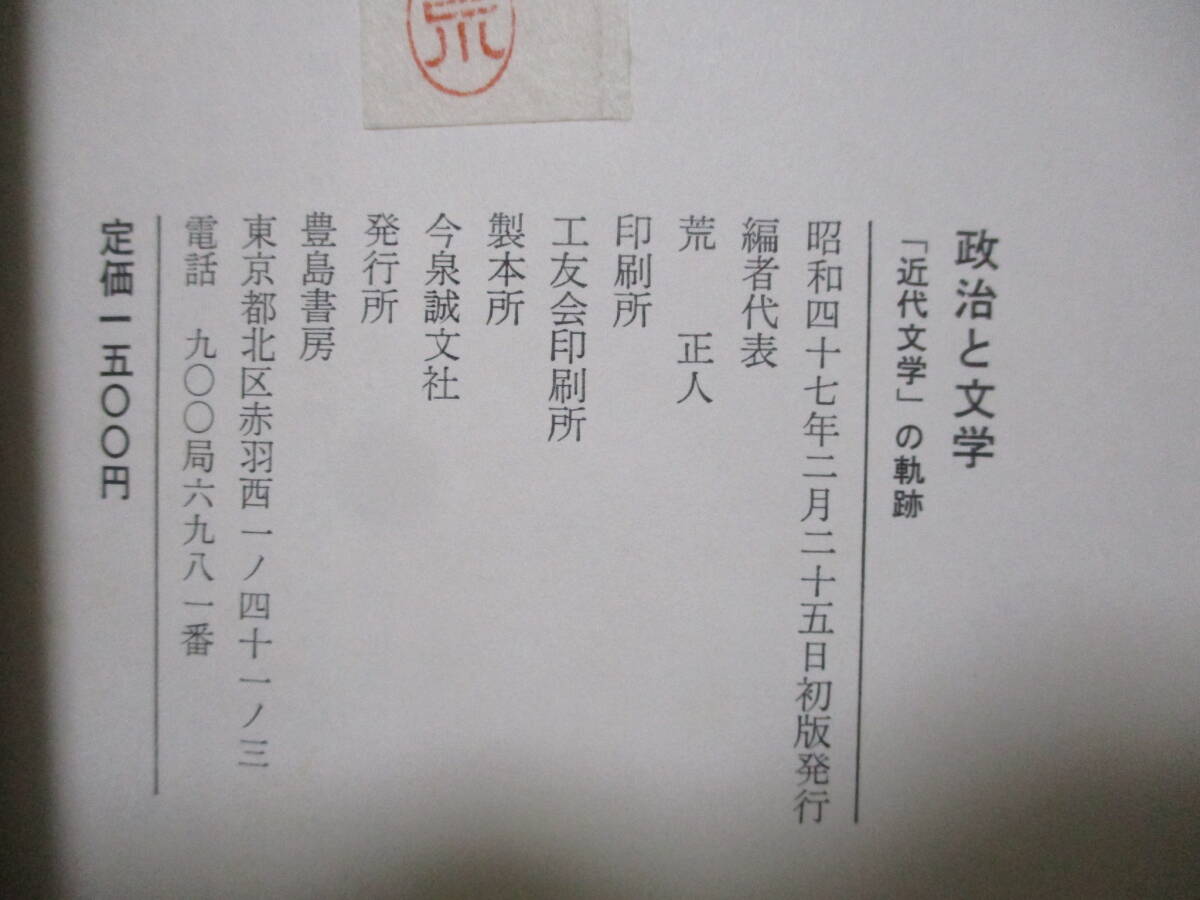 荒
政治と文学
「近代文学」の軌跡
昭和四十七年二月二十五日初版発行
編者代表
荒 正人
印刷所
工友会印刷所
製本所
今泉誠文社
発行所
豊島書房
東京都北区赤羽西一ノ四十一ノ三
電話 九〇〇局六九八一番
定価一五〇〇円